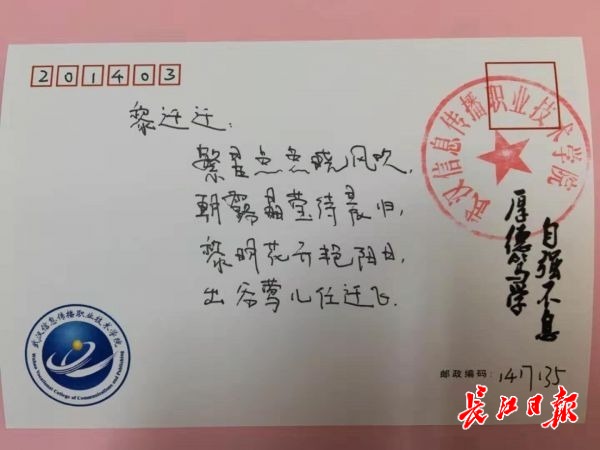 201403
黎迁迁:
繁星点点晓风吹,
朝露晶莹待晨归,
黎明花开艳阳日,
出谷莺儿任迁飞.
武汉信息传播职业技术学院
自强不息
厚德笃学
武汉信息传播职业技术学院
Wuhan Vocational College of Communications and Publishing
邮政编码:
长江日报